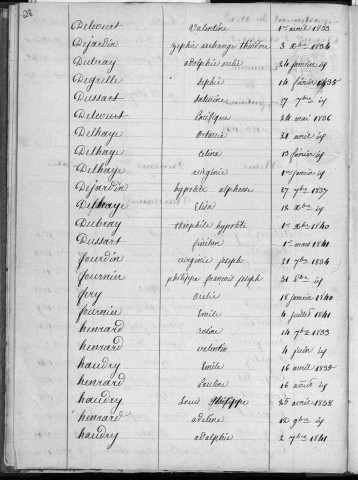 Delcourt valentine 1er avril 1833
Dejardin zephir archange théodore 3 xbre 1834
Dubray adolphe 24 janvier id
Degrelle sophie 14 février 1835
Dussart 27 7bre id
Delcourt Pacifique 24 mai 1836
Delhaye octavie 21 avril id
Delhaye celina 13 février id
Delhaye virginie 1er janvier id
Dejardin hypolite alphonse 27 7bre 1837
Delhaye Elisa 12 xbre id
Dubray théophile hypolite 1er xbre 1840
Dussart fénélon 1er mars 1841
Jourdin virginie joseph 21 7bre 1834
fournier philippe françois joseph 31 8bre id
fery 18 janvier 1840
fournier Emile 4 juillet 1841
henrard rosine 14 7bre 1833
henrard valentin 4 juin id
haudry Emile 16 avril 1835
henrard Pauline 16 août id
haudry Louis Philippe 25 avril 1838
henrard adeline 12 9bre id
haudry adolphie 2 7bre 1841